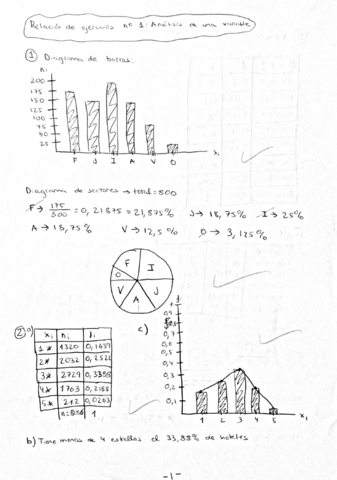 Relación de ejercicios nº 1: Análisis de una variable
① Diagrama de barras:
ni
200
175
150
125
100
75
50
25
F J I A V O xi
Diagrama de sectores → total = 800
F → 175/800 = 0,21875 = 21,875% J → 18,75% I → 25%
A → 18,75% V → 12,5% O → 3,125%
F I
O
V A J
② a) c)
xi ni fi
1* 1320 0,1639
2* 2032
3* 2729
4* 1763
5* 212 0,0263
1
0,9
0,7
0,6
0,5
0,4
0,3
0,2
0,1
1 2 3 4 5 xi
b) Tiene menos de 4 estrellas el % de hoteles
-1-